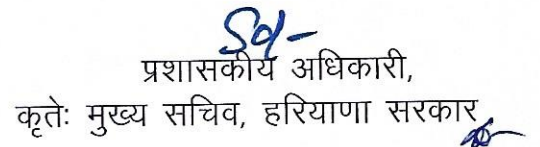 Sd/-
प्रशासकीय अधिकारी,
कृतेः मुख्य सचिव, हरियाणा सरकार